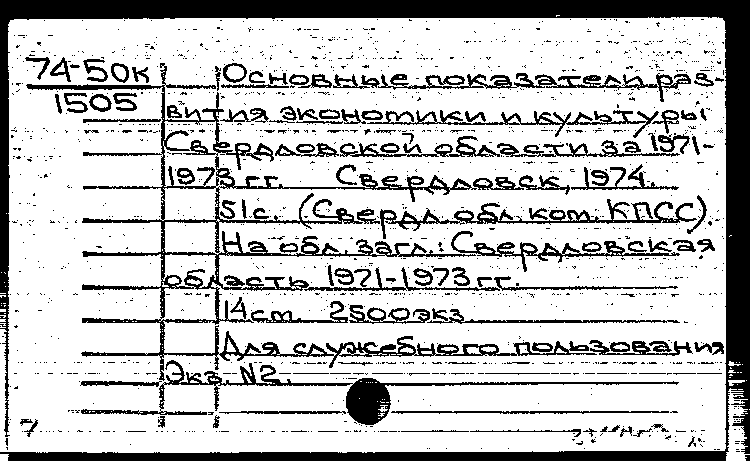 74-50к
1505
Основные показатели раз-
вития экономики и культуры
Свердловской области за 1971-
1973 гг. Свердловск, 1974.
51с. (Свердл. обл. ком. КПСС).
На обл. загл.: Свердловская
область 1971-1973 гг.
14см. 2500экз.
Для служебного пользования
Экз. N2.
7